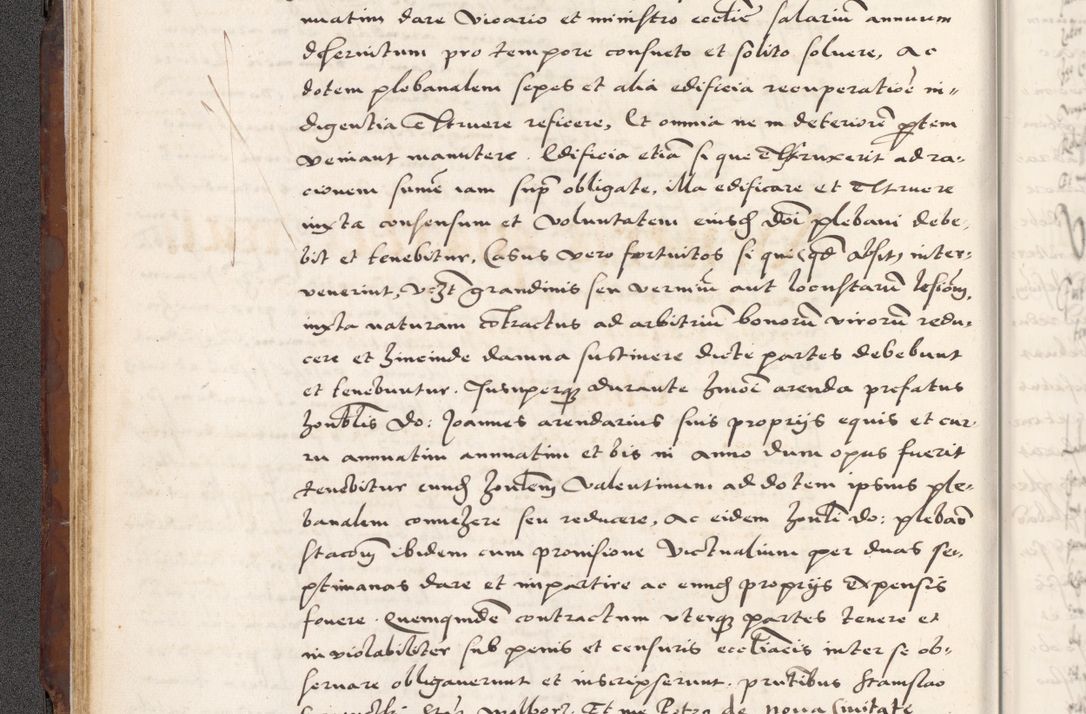 nuatim dare Vicario et ministro ecclie salariū annuum
deservitum pro tempore consueto et solito solvere, Ac
dotem plebanalem sepes et alia edificia recuperatiōe in-
digentia Extruere reficere, Et omnia ne in deteriorē ptem
veniant manutere. Edificia etiā si que Extruxerit ad ra-
cionem sume iam sup obligate, illa edificare et Extruere
iuxta consensum et voluntatem eiusdē dni plebani debe-
bit et tenebitur, Casus vero fortuitos si qui (qd absit) inter-
venerint, vzt grandinis seu vermiū aut locustarū lesionē,
iuxta naturam cōtractus ad arbitriū bonorū virorū redu-
cere et hincinde damna sustinere dicte partes debebunt
et tenebuntur. Insuperq durante hmōi arenda prefatus
honblis do: Joannes arendarius suis proprijs equis et cur-
ru annuatim annuatim et bis in anno dum opus fuerit
tenebitur eundē honlem Valentinum ad dotem ipsius ple-
banalem convehere seu reducere, Ac eidem honli do: plebāo
stacōnē ibidem cum provisione victualium per duas se-
ptimanas dare et impartire ac eundē proprijs Expensis
fovere. Quemquidē contractum uterq partes tenere et
inviolabiliter sub penis et censuris eccliacis inter se ob-
servare obligaverunt et inscripserunt. pntibus Stanislao
Et me Petro de nova Civitate